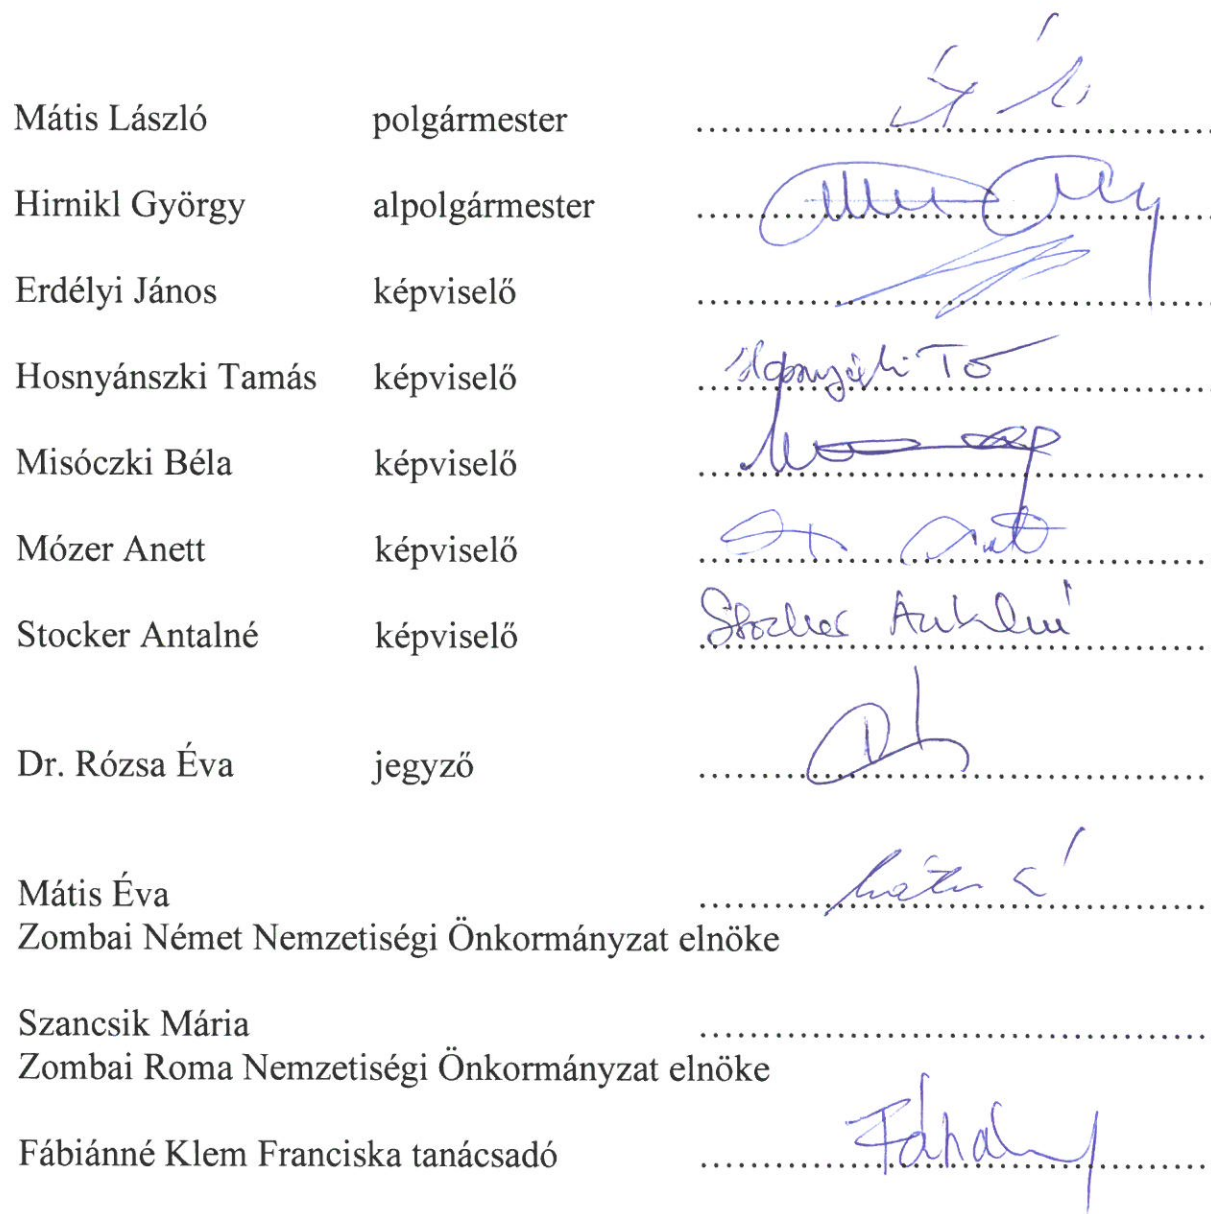 Mátis László polgármester ........................................
Hirnikl György alpolgármester ........................................
Erdélyi János képviselő ........................................
Hosnyánszki Tamás képviselő ........................................
Misóczki Béla képviselő ........................................
Mózer Anett képviselő ........................................
Stocker Antalné képviselő ........................................ Stocker Antalné
Dr. Rózsa Éva jegyző ........................................
Mátis Éva ........................................
Zombai Német Nemzetiségi Önkormányzat elnöke
Szancsik Mária ........................................
Zombai Roma Nemzetiségi Önkormányzat elnöke
Fábiánné Klem Franciska tanácsadó ........................................